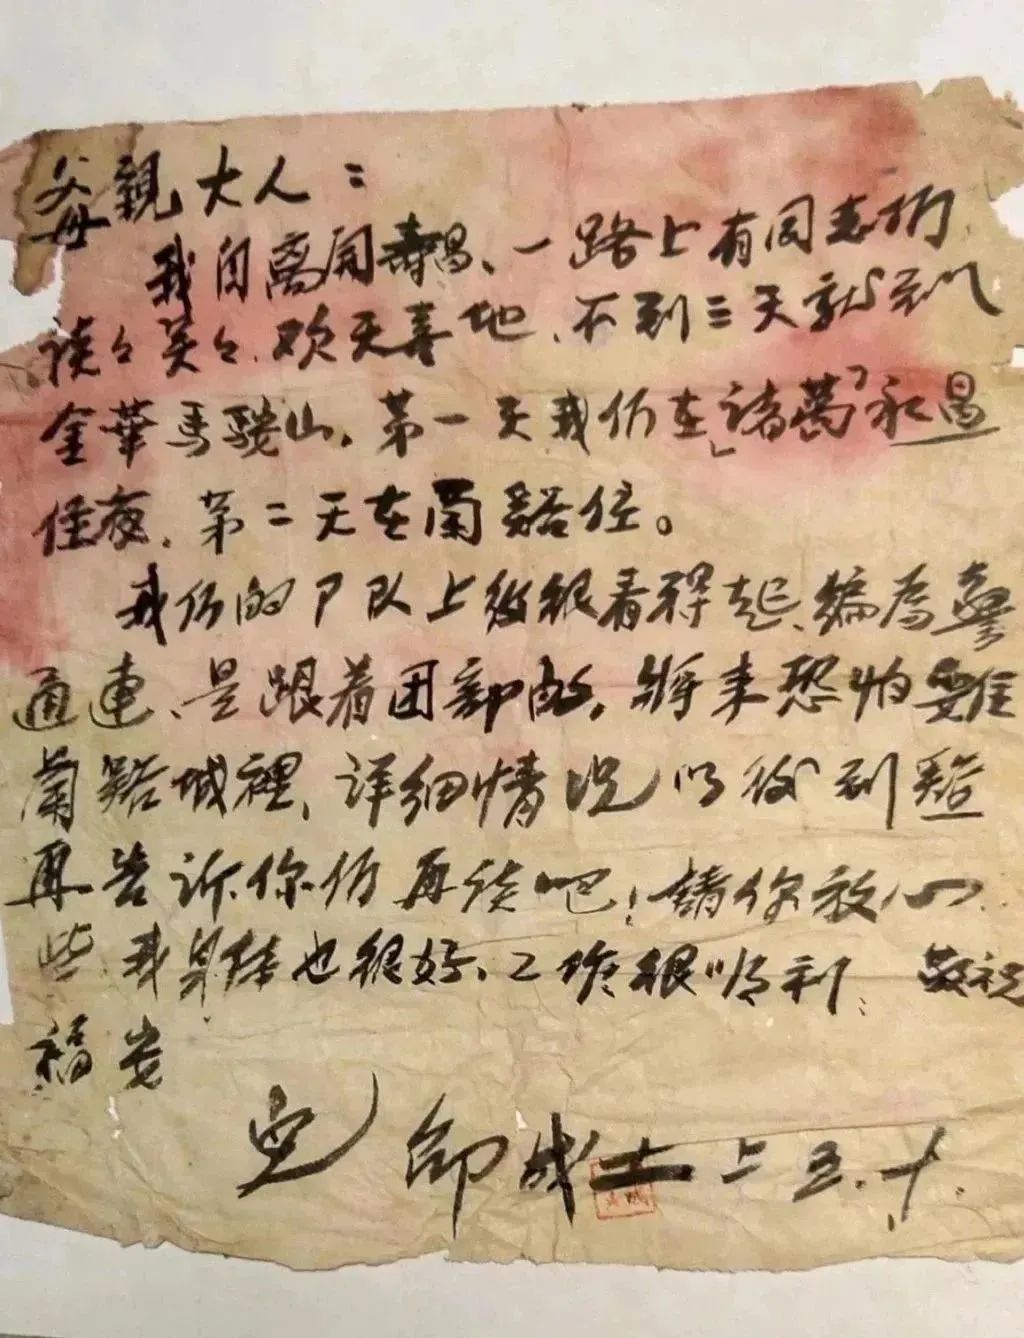 父母親大人：
我自离開壽昌、一路上有同志们
谈々笑々、欢天喜地、不到三天就到
金華馬鞍山，第一天我们在「諸葛」永昌
住夜，第二天在蘭谿住。
我们的 队上级很看得起、编為
通連、是跟着团部的，将来恐怕
蘭谿城裡，详细情况以後到
再告訴你们再谈吧！請你放心
些、我身体也很好，工作很順利，敬祝
福安
兒 邵成士 上 五.十.